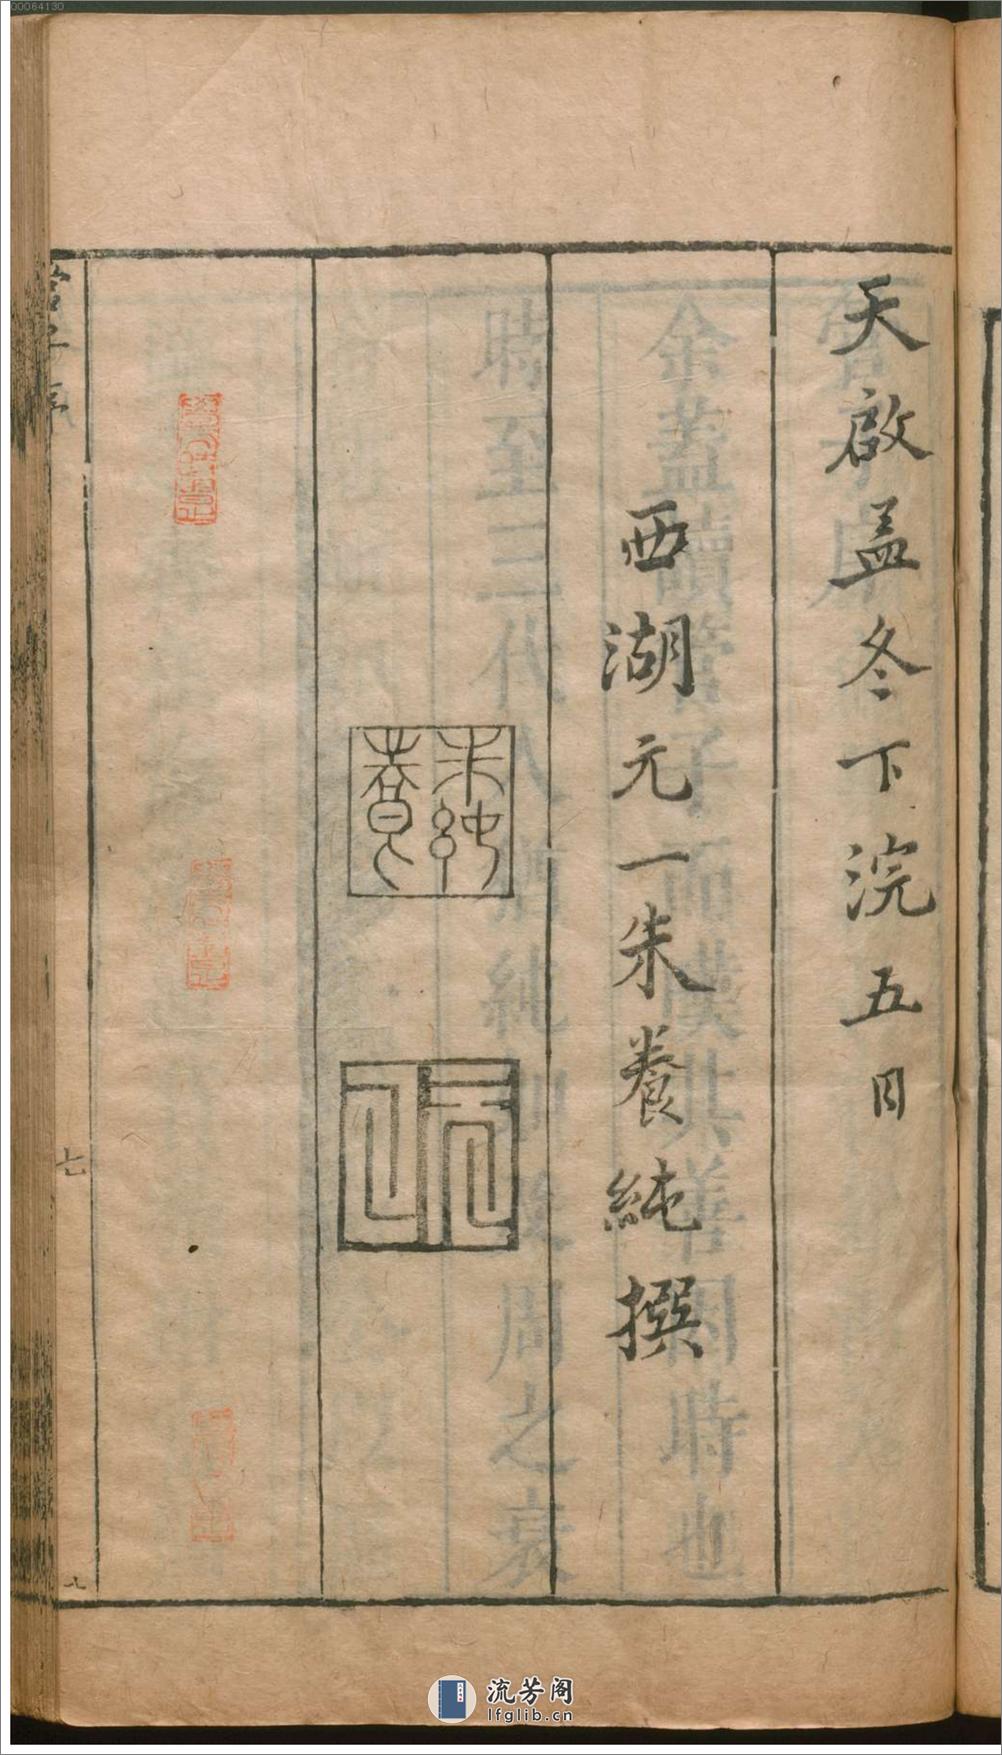 天啟孟冬下浣五日
西湖元一朱養純撰
朱養純
元一
管子序
七
流芳阁
lfglib.cn
00064130